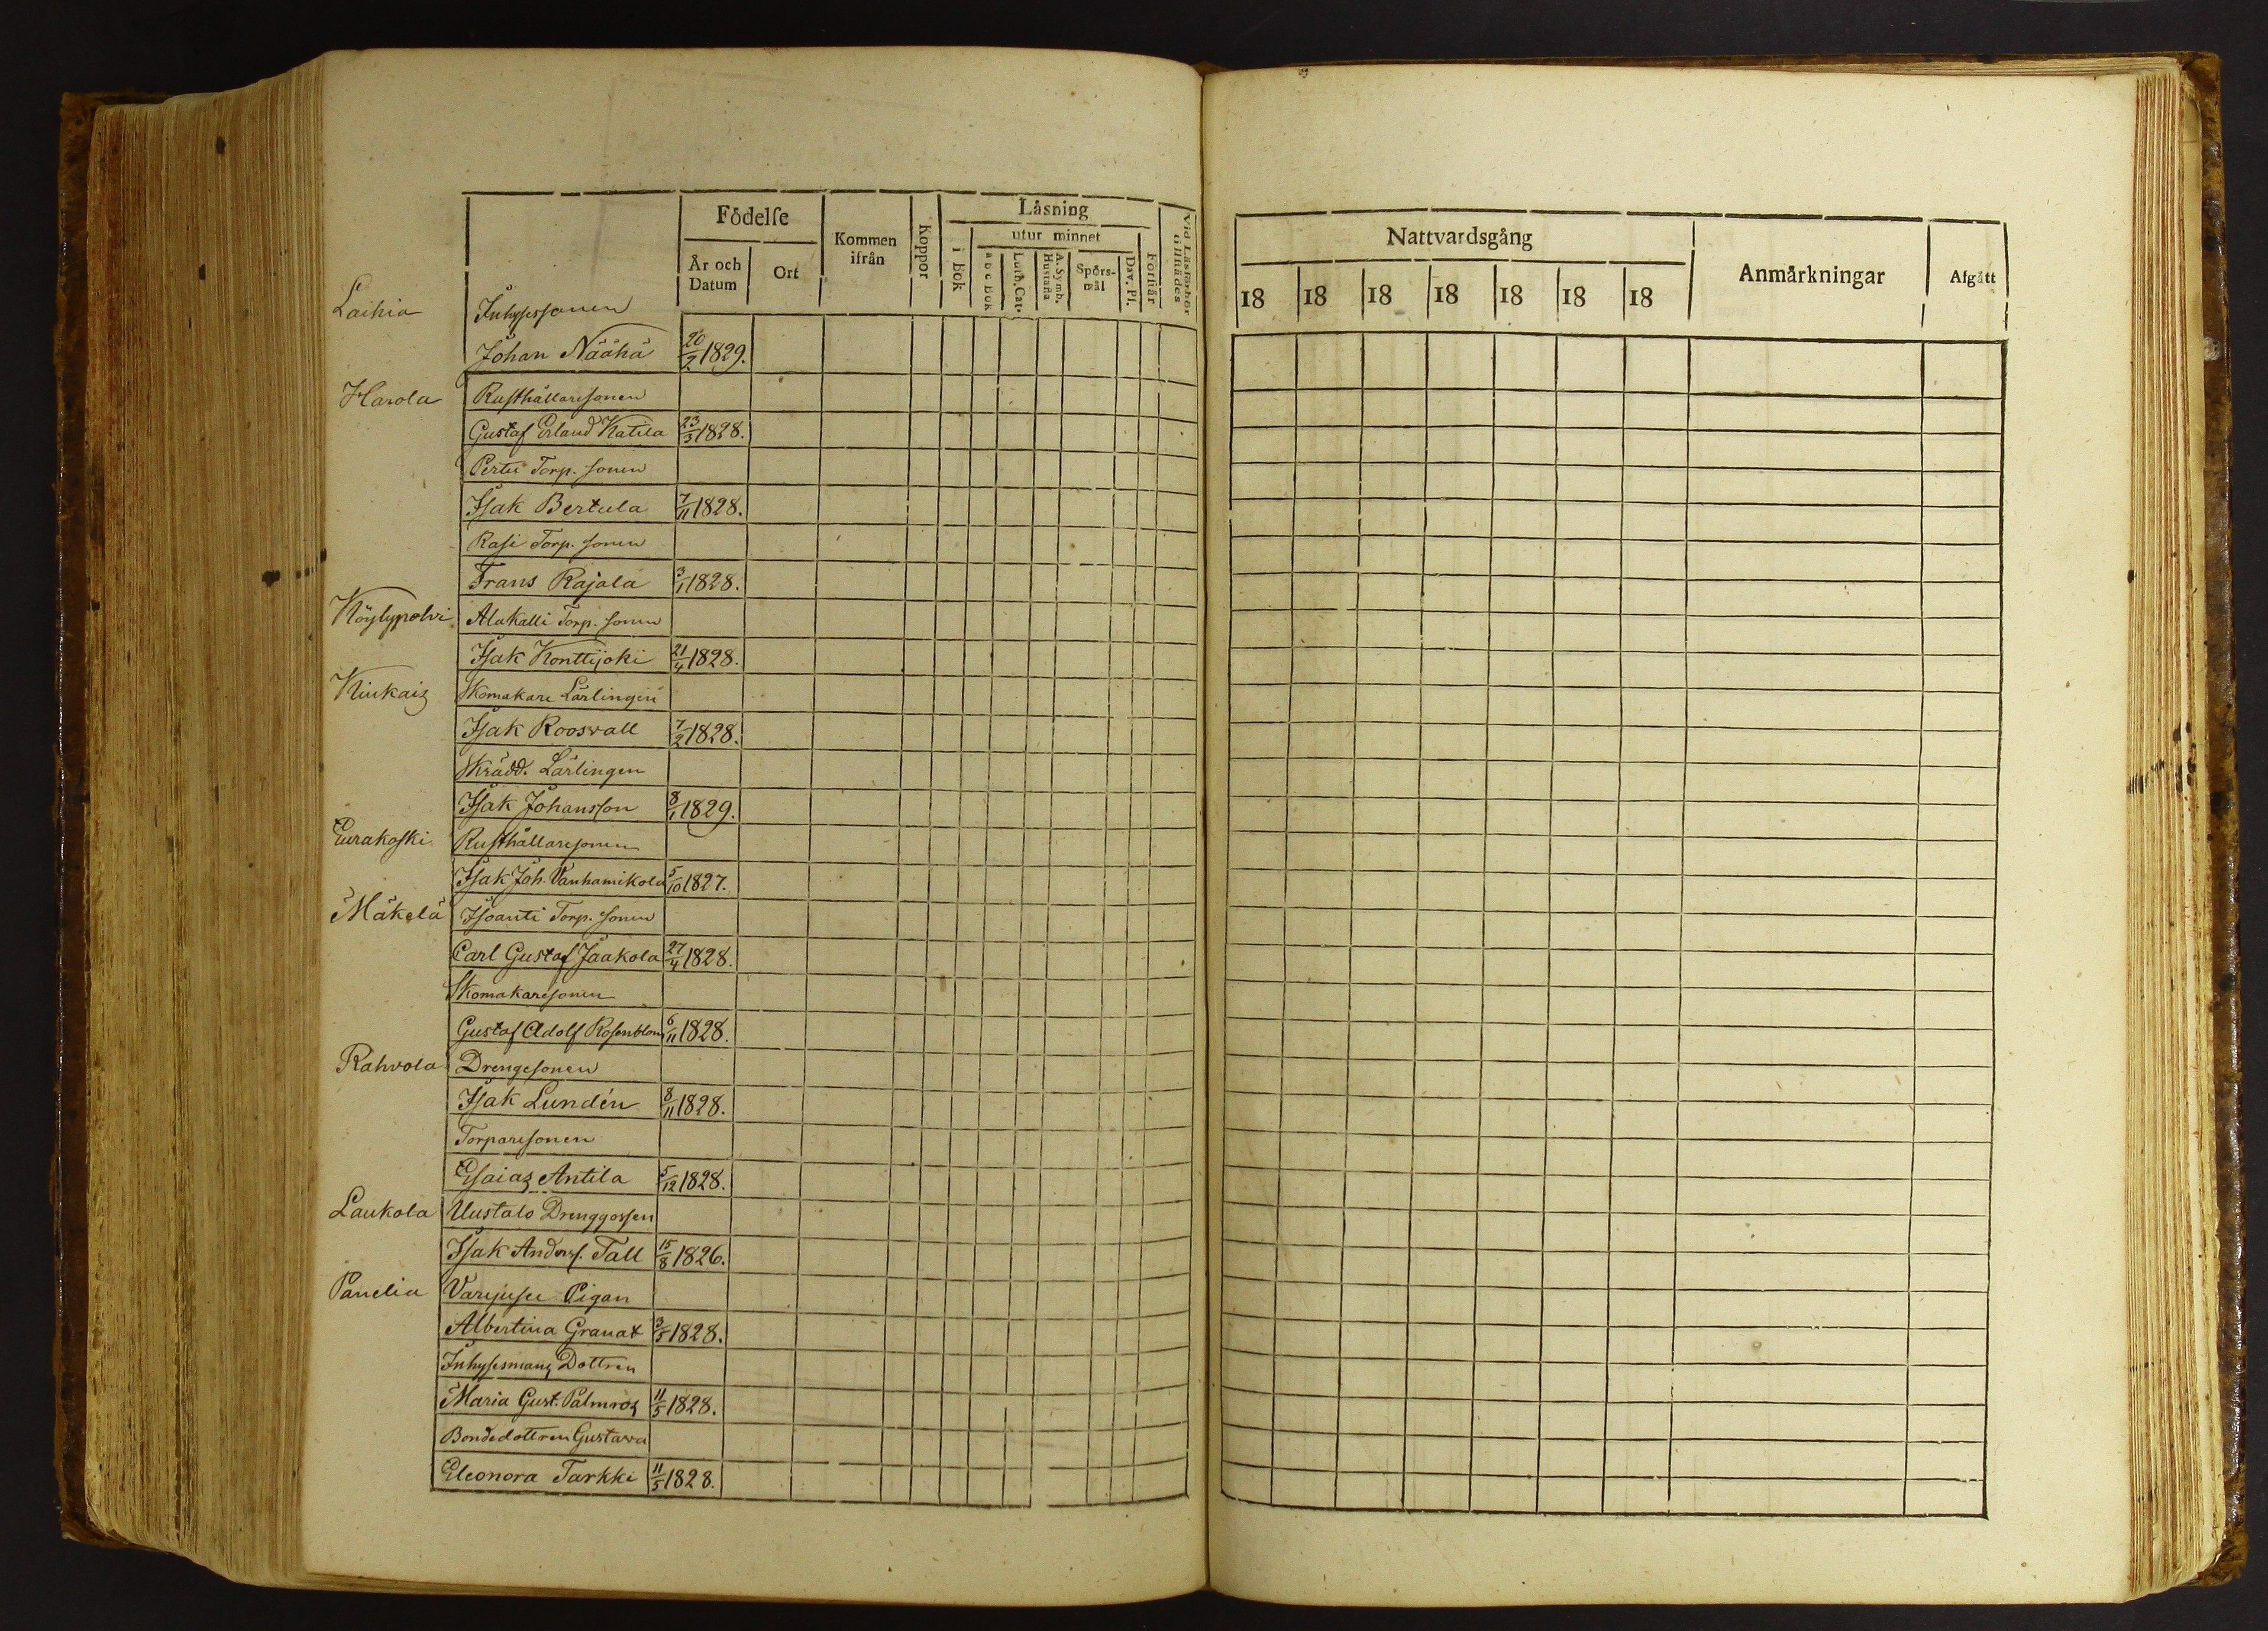 Födelse
År och Datum
Ort
Kommen ifrån
Koppor
Läsning
i Bok
utur minnet
a b c Bok
Luth. Cat.
A. Symb. Hustafla
Spörsmål
Dav. Ps.
Förstår
Vid Läsförhör tillstädes
Laihia Inhysessonen
Johan Näähä 20/2 1829.
Harola Rusthållaresonen
Gustaf Erland Katila 23/3 1828.
Perttu Torp. sonen
Isak Bertula 7/11 1828.
Rasi Torp. sonen
Frans Rajala 3/1 1828.
Köylypolvi Alakalli Torp. sonen
Isak Konttijoki 21/4 1828.
Kiukais Skomakare Lärlingen
Isak Roosvall 7/2 1828.
Skrädd. Lärlingen
Isak Johansson 8/1 1829.
Eurakoski Rusthållaresonen
Isak Joh. Vanhamikola 5/10 1827.
Mäkelä Isoanti Torp. sonen
Carl Gustaf Jaakola 27/4 1828.
Skomakaresonen
Gustaf Adolf Rosenblom 6/11 1828.
Rahvola Drengesonen
Isak Lundén 8/11 1828.
Torparesonen
Esaias Antila 5/12 1828.
Laukola Uustalo Drenggossen
Isak Anders. Tall 15/8 1826.
Panelia Pigan
Albertina Granat 3/5 1828.
Inhysesmans Dottren
Maria Gust. Palmros 11/5 1828.
Bondedottren Gustava
Eleonora Tarkki 11/5 1828.
Nattvardsgång
18 18 18 18 18 18 18
Anmärkningar
Afgått